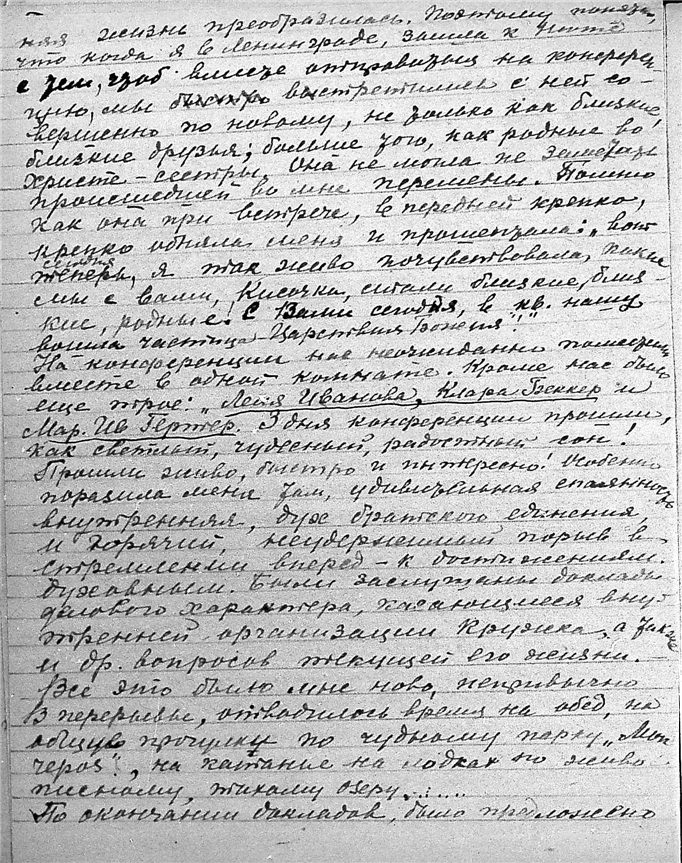 няя жизнь преобразилась. Поэтому понятно,
что когда я в Ленинграде, зашла к
с тем, чтоб вместе отправиться на конферен-
цию, мы быстро встретились с ней со-
вершенно по новому, не только как близкие,
близкие друзья; больше того, как родные во
Христе – сестры. Она не могла не заметить
происшедшей во мне перемены. Помню
как она при встрече, в передней крепко,
крепко обняла меня и прошептала: „вот
сегодня
теперь, я так живо почувствовала, какие
мы с вами, Кисочка, стали близкие, близ
кие, родные! С Вами сегодня, в кв. нашу
вошла частица Царствия Божия"!
На конференции нас неожиданно поместили
вместе в одной комнате. Кроме нас было
еще трое: „Леля Иванова, Клара Беккер и
Мар. Ив Гертер. 3 дня конференции прошли,
как светлый, чудесный, радостный сон!
Прошли живо, быстро и интересно! Особенно
поразила меня там, удивительная спаянность
внутренняя, дух братского единения
и горячий, неудержимый порыв в
стремлении вперед – к достижениям
духовным. Были заслушаны доклады
делового характера, касающиеся вну-
тренней организации Кружка, а также
и др. вопросов текущей его жизни.
Все это было мне ново, непривычно
В перерывы, отводилось время на обед, на
общую прогулку по чудному парку „Мон
репоя", на катание на лодках по живо
писному, тихому озеру......
По окончании докладов, было предложено